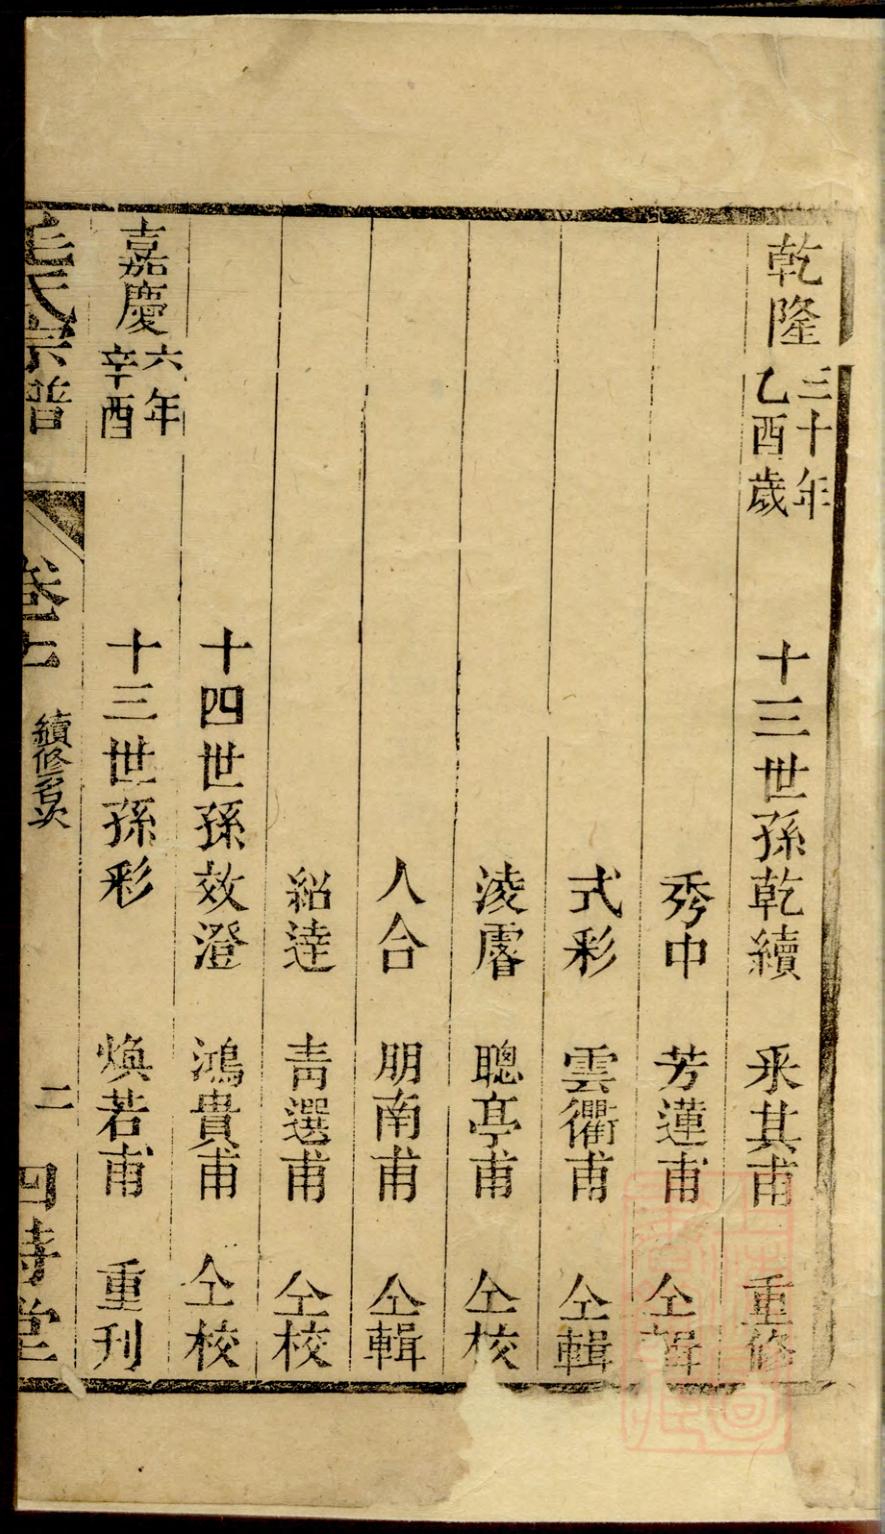 乾隆三十年乙酉歲 十三世孫乾續 釆其甫 重修
秀中 芳蓮甫 仝輯
式彩 雲衢甫 仝輯
淩霨 聰亭甫 仝校
人合 朋南甫 仝輯
紹逹 青選甫 仝校
十四世孫效澄 鴻貴甫 仝校
嘉慶六年辛酉 十三世孫彩 煥若甫 重刊
毛氏宗譜 卷十 續修名次 二 四時堂